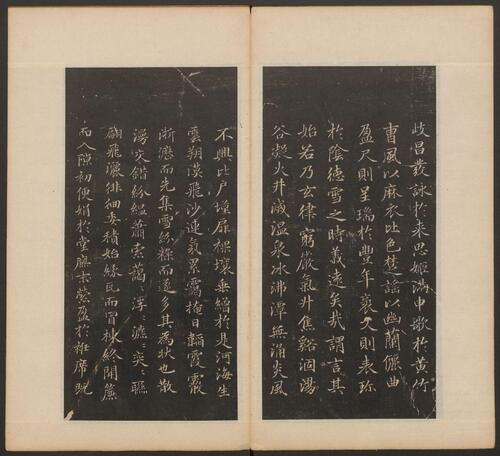 岐昌發詠於来思姬滿申歌於黃竹
曹風以麻衣比色楚謠以幽蘭儷曲
盈尺則呈瑞於豐年袤丈則表沴
於陰德雪之時義遠矣哉謂言其
始若乃玄律窮嚴氣升焦谿涸湯
谷凝火井滅溫泉冰沸潭無涌炎風
不興北戶墐扉裸壤垂繒於是河海生
雲朔漠飛沙連氛累靄掩日韜霞霰
淅瀝而先集雪紛糅而遂多其為狀也散
漫交錯紛縕蕭索藹〻浮〻瀌〻奕〻聯
翩飛灑徘徊委積始緣瓦而冒棟終開簾
而入隙初便娟於堂廡末縈盈於帷席既